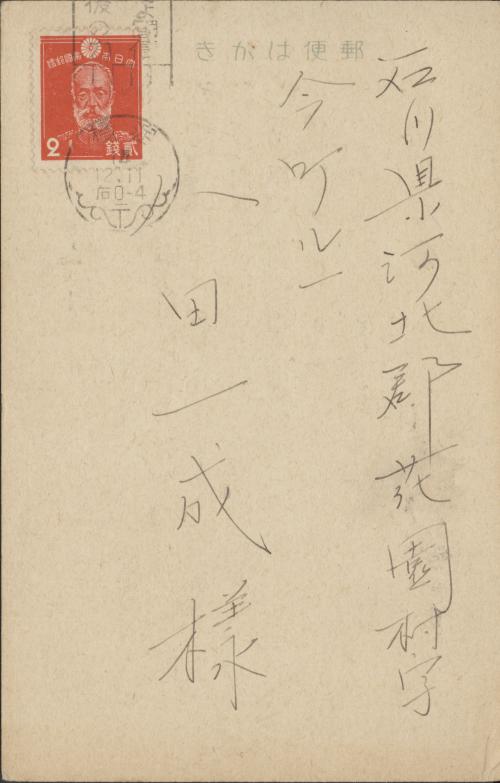 郵便はがき
石川県河北郡花園村字
今町ルー
八田一成様
大日本帝国郵便
2
貳錢
12.11
后0-4